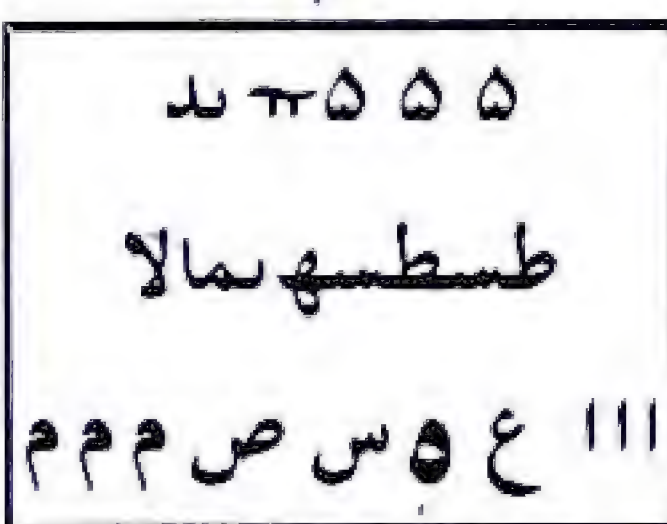 ۵ ۵ ۵ ىد
طسطسه ىمالا
ااا ع ۵ س ص م م م